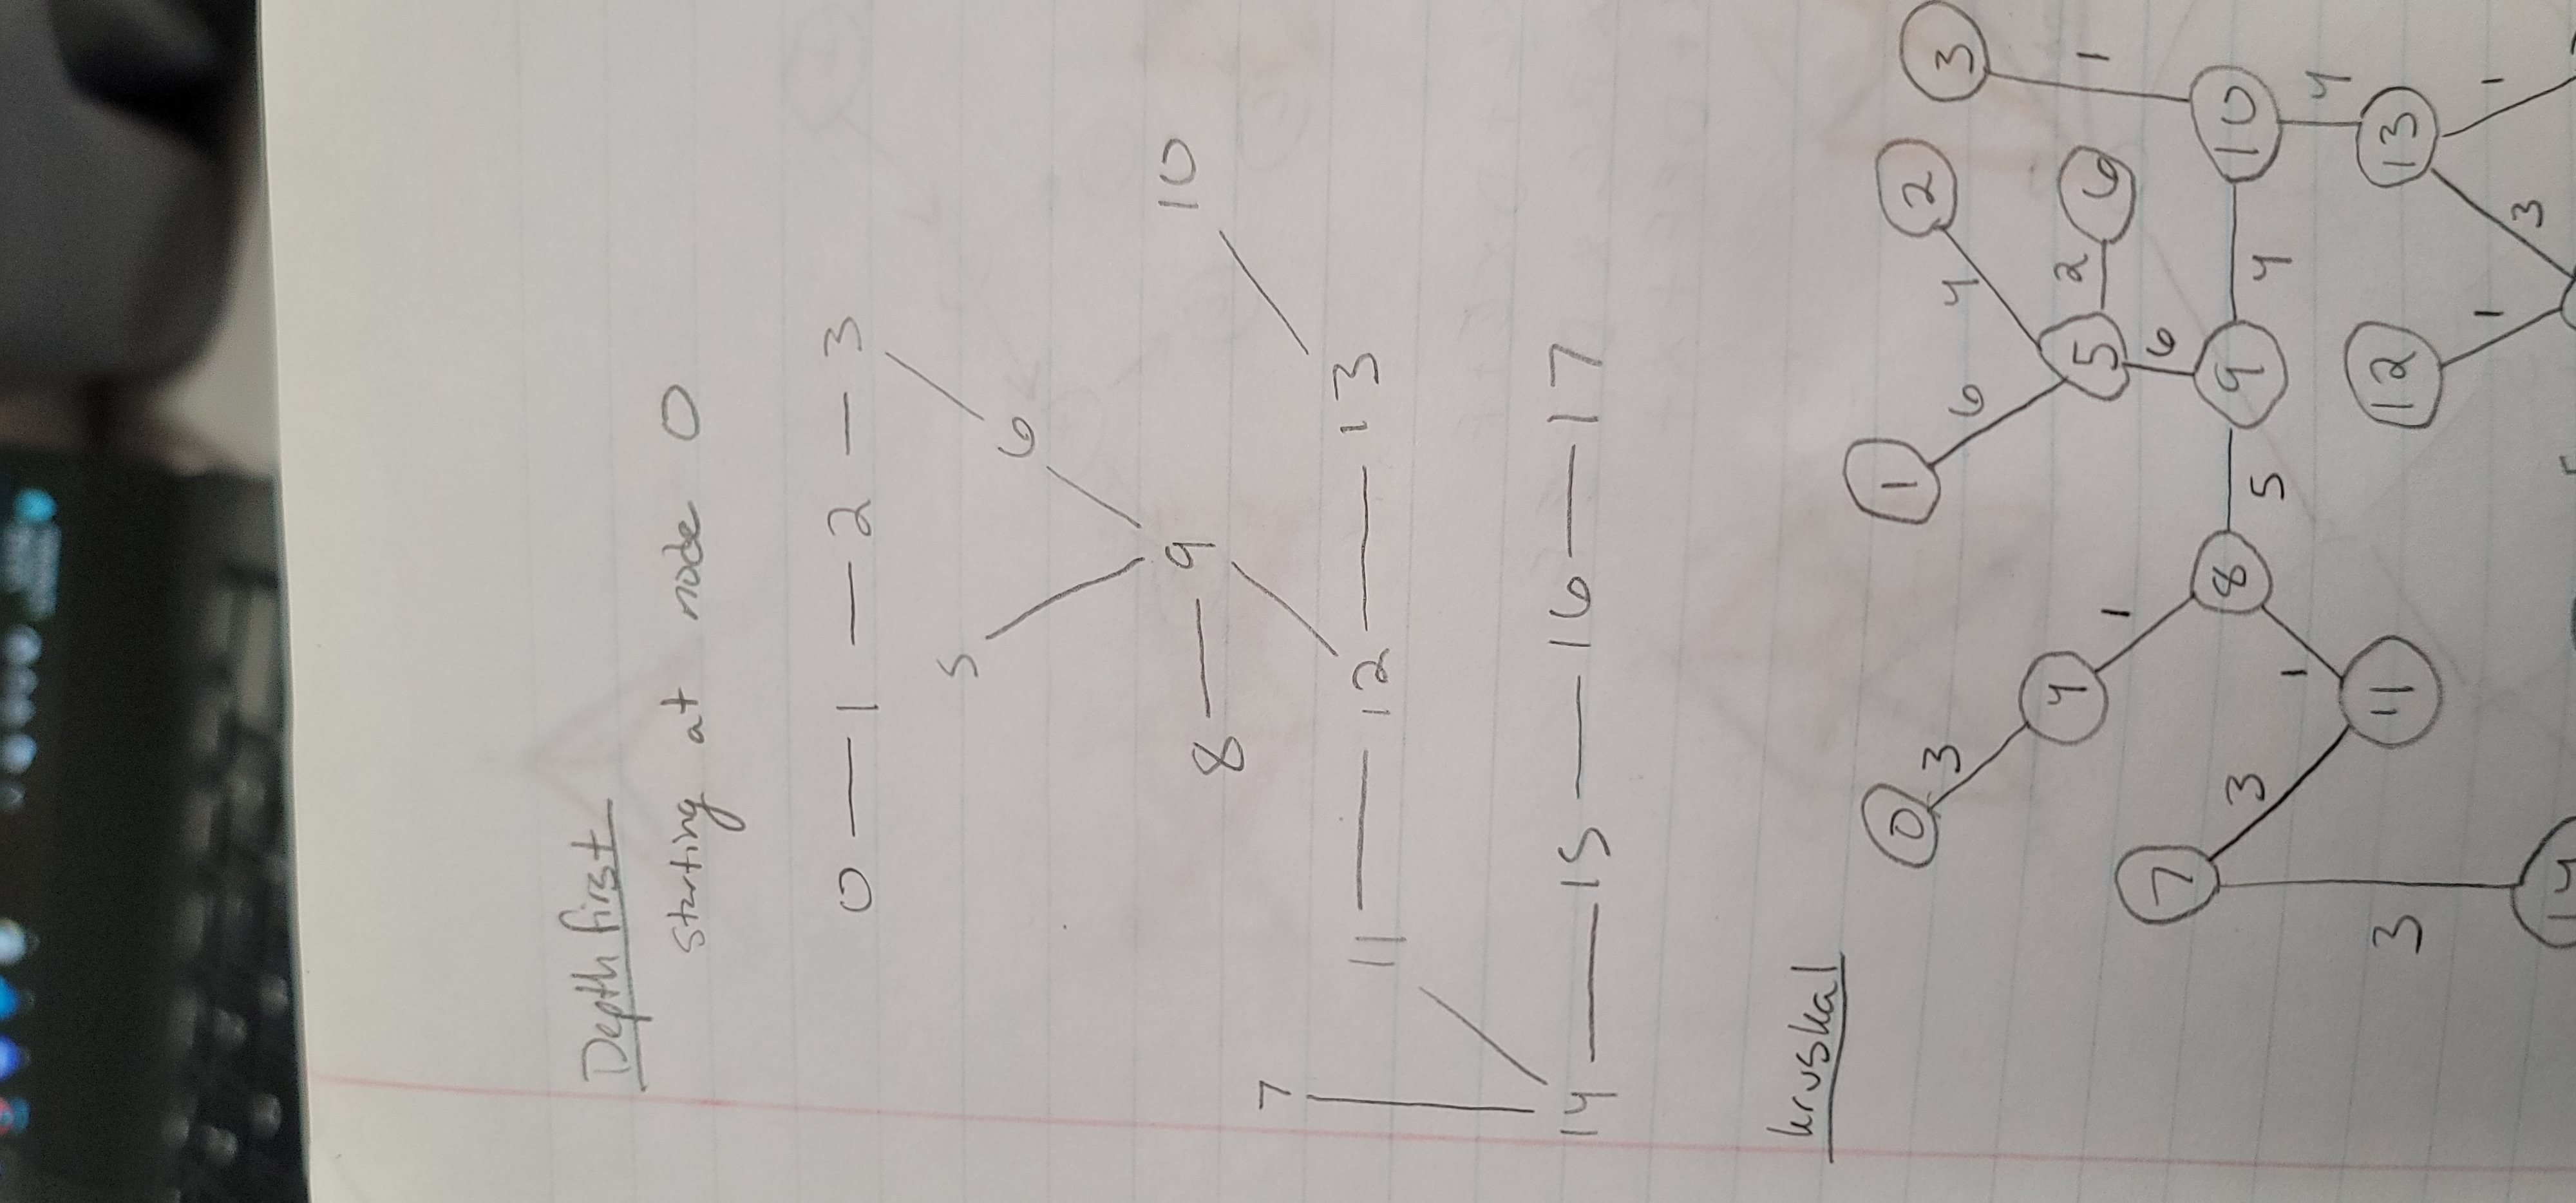 Depth first
starting at node 0
0 — 1 — 2 — 3
5
6
8 — 9
10
7
11 — 12 — 13
14 — 15 — 16 — 17
kruskal
0 1 2 3
3 6 4
4 5 2 6
1 1
7 6
8 9 10
3 5 4
1 4
11 12 13
3
1 3 1
14